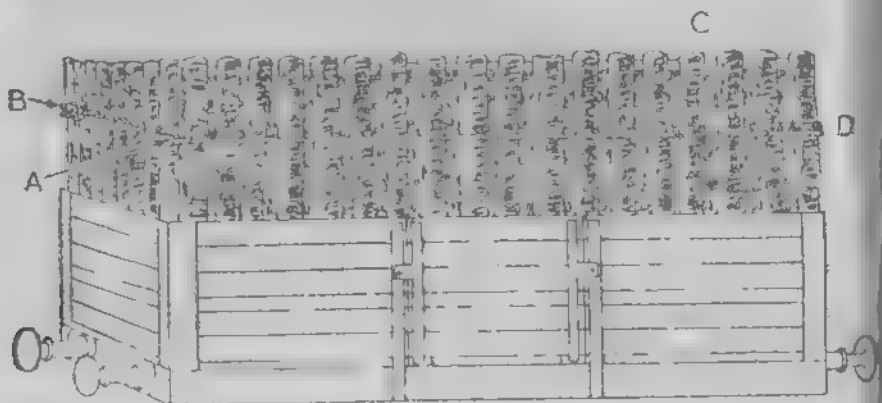 C
B
D
A